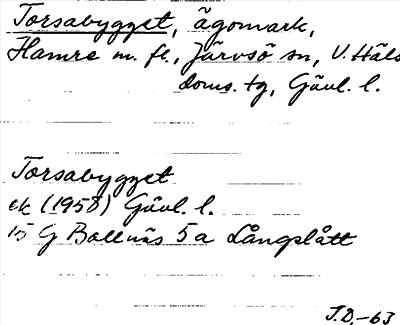 Torsabygget, ägomark,
Hamre m. fl., Järvsö sn, V. Häls
doms. tg, Gävl. l.
Torsabygget
ek (1958) Gävl. l.
15 G Bollnäs 5 a Långslått
J.D.-63